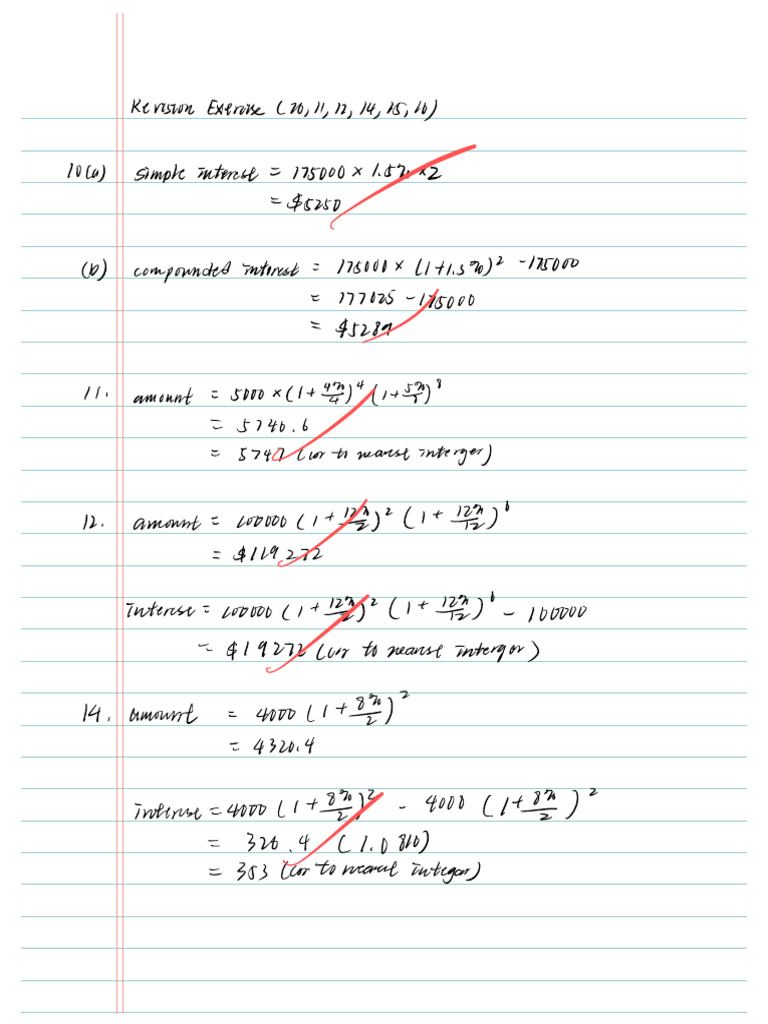 Revision Exercise (10, 11, 12, 14, 15, 16)
10(a) simple interest = 175000 × 1.5% × 2
= $5250
(b) compounded interest = 175000 × (1+1.5%)² - 175000
= 177025 - 175000
= $5289
11. amount = 5000 × (1 + 4%/4)⁴ (1 + 5%/8)⁸
= 5746.6
= 5747 (cor to nearest interger)
12. amount = 100000 (1 + 12%/2)² (1 + 12%/12)⁶
= $119272
Interese = 100000 (1 + 12%/2)² (1 + 12%/12)⁶ - 100000
= $19272 (cor to nearse intergor)
14. amount = 4000 (1 + 8%/2)²
= 4320.4
interese = 4000 (1 + 8%/2)² - 4000 (1 + 8%/2)²
= 326.4 (1.0816)
= 353 (cor to nearest integer)